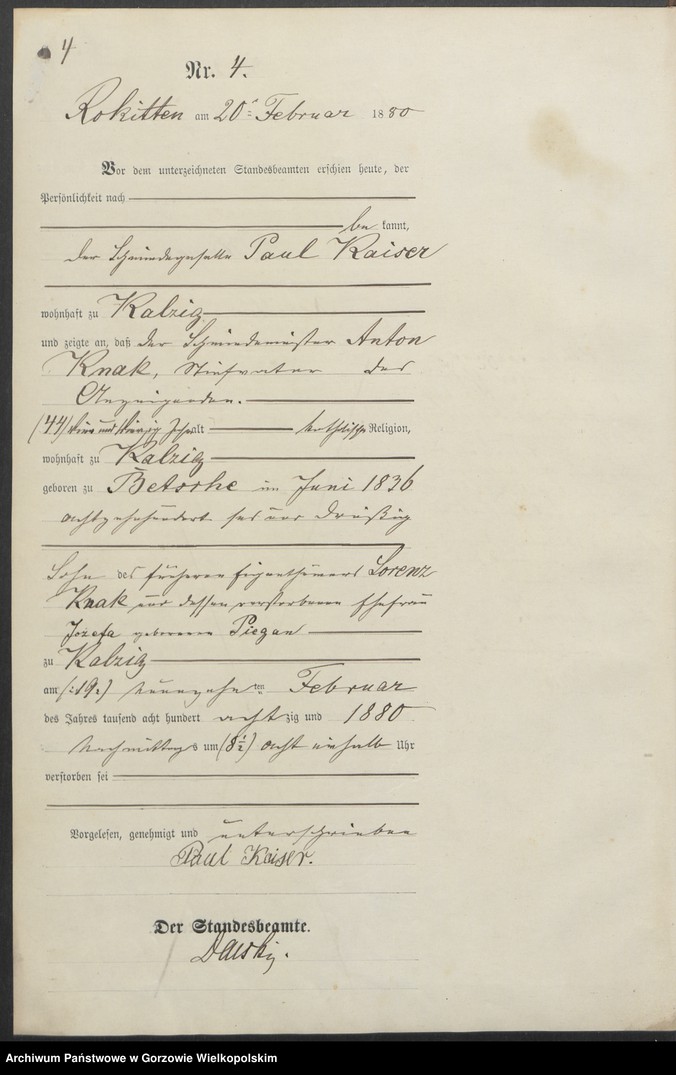 4
Nr. 4.
Rokitten am 20 Februar 1880
Vor dem unterzeichneten Standesbeamten erschien heute, der
Persönlichkeit nach
be kannt,
der Schmiedegeselle Paul Kaiser
wohnhaft zu Kalzig
und zeigte an, daß der Schmiedemeister Anton
Knak, Stiefvater des
Anzeigenden.
(44) vier und vierzig Jahr alt katholischer Religion,
wohnhaft zu Kalzig
geboren zu Betsche im Juni 1836
achtzehnhundert sechs und dreißig
Sohn des früheren Eigenthümers Lorenz
Knak und dessen verstorbenen Ehefrau
Jozefa geborenen Piegan
zu Kalzig
am (:19:) neunzehn ten Februar
des Jahres tausend acht hundert acht zig und 1880
Nachmittags um (8½) acht einhalb Uhr
verstorben sei
Vorgelesen, genehmigt und unterschrieben
Paul Kaiser.
Der Standesbeamte.
Archiwum Państwowe w Gorzowie Wielkopolskim